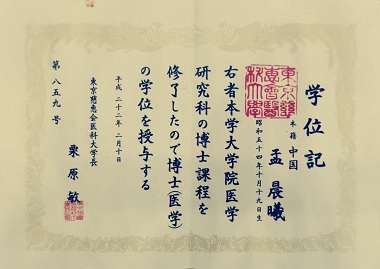 学位記
本籍 中国
孟 晨曦
昭和五十四年十月十九日生
右者本学大学院医学
研究科の博士課程を
修了したので博士(医学)
の学位を授与する
平成二十二年二月十日
東京慈恵会医科大学長
栗原 敏
第八五九号